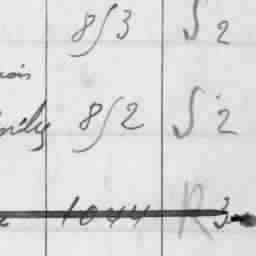 8/3 S 2
8/2 S 2
1044 R 3